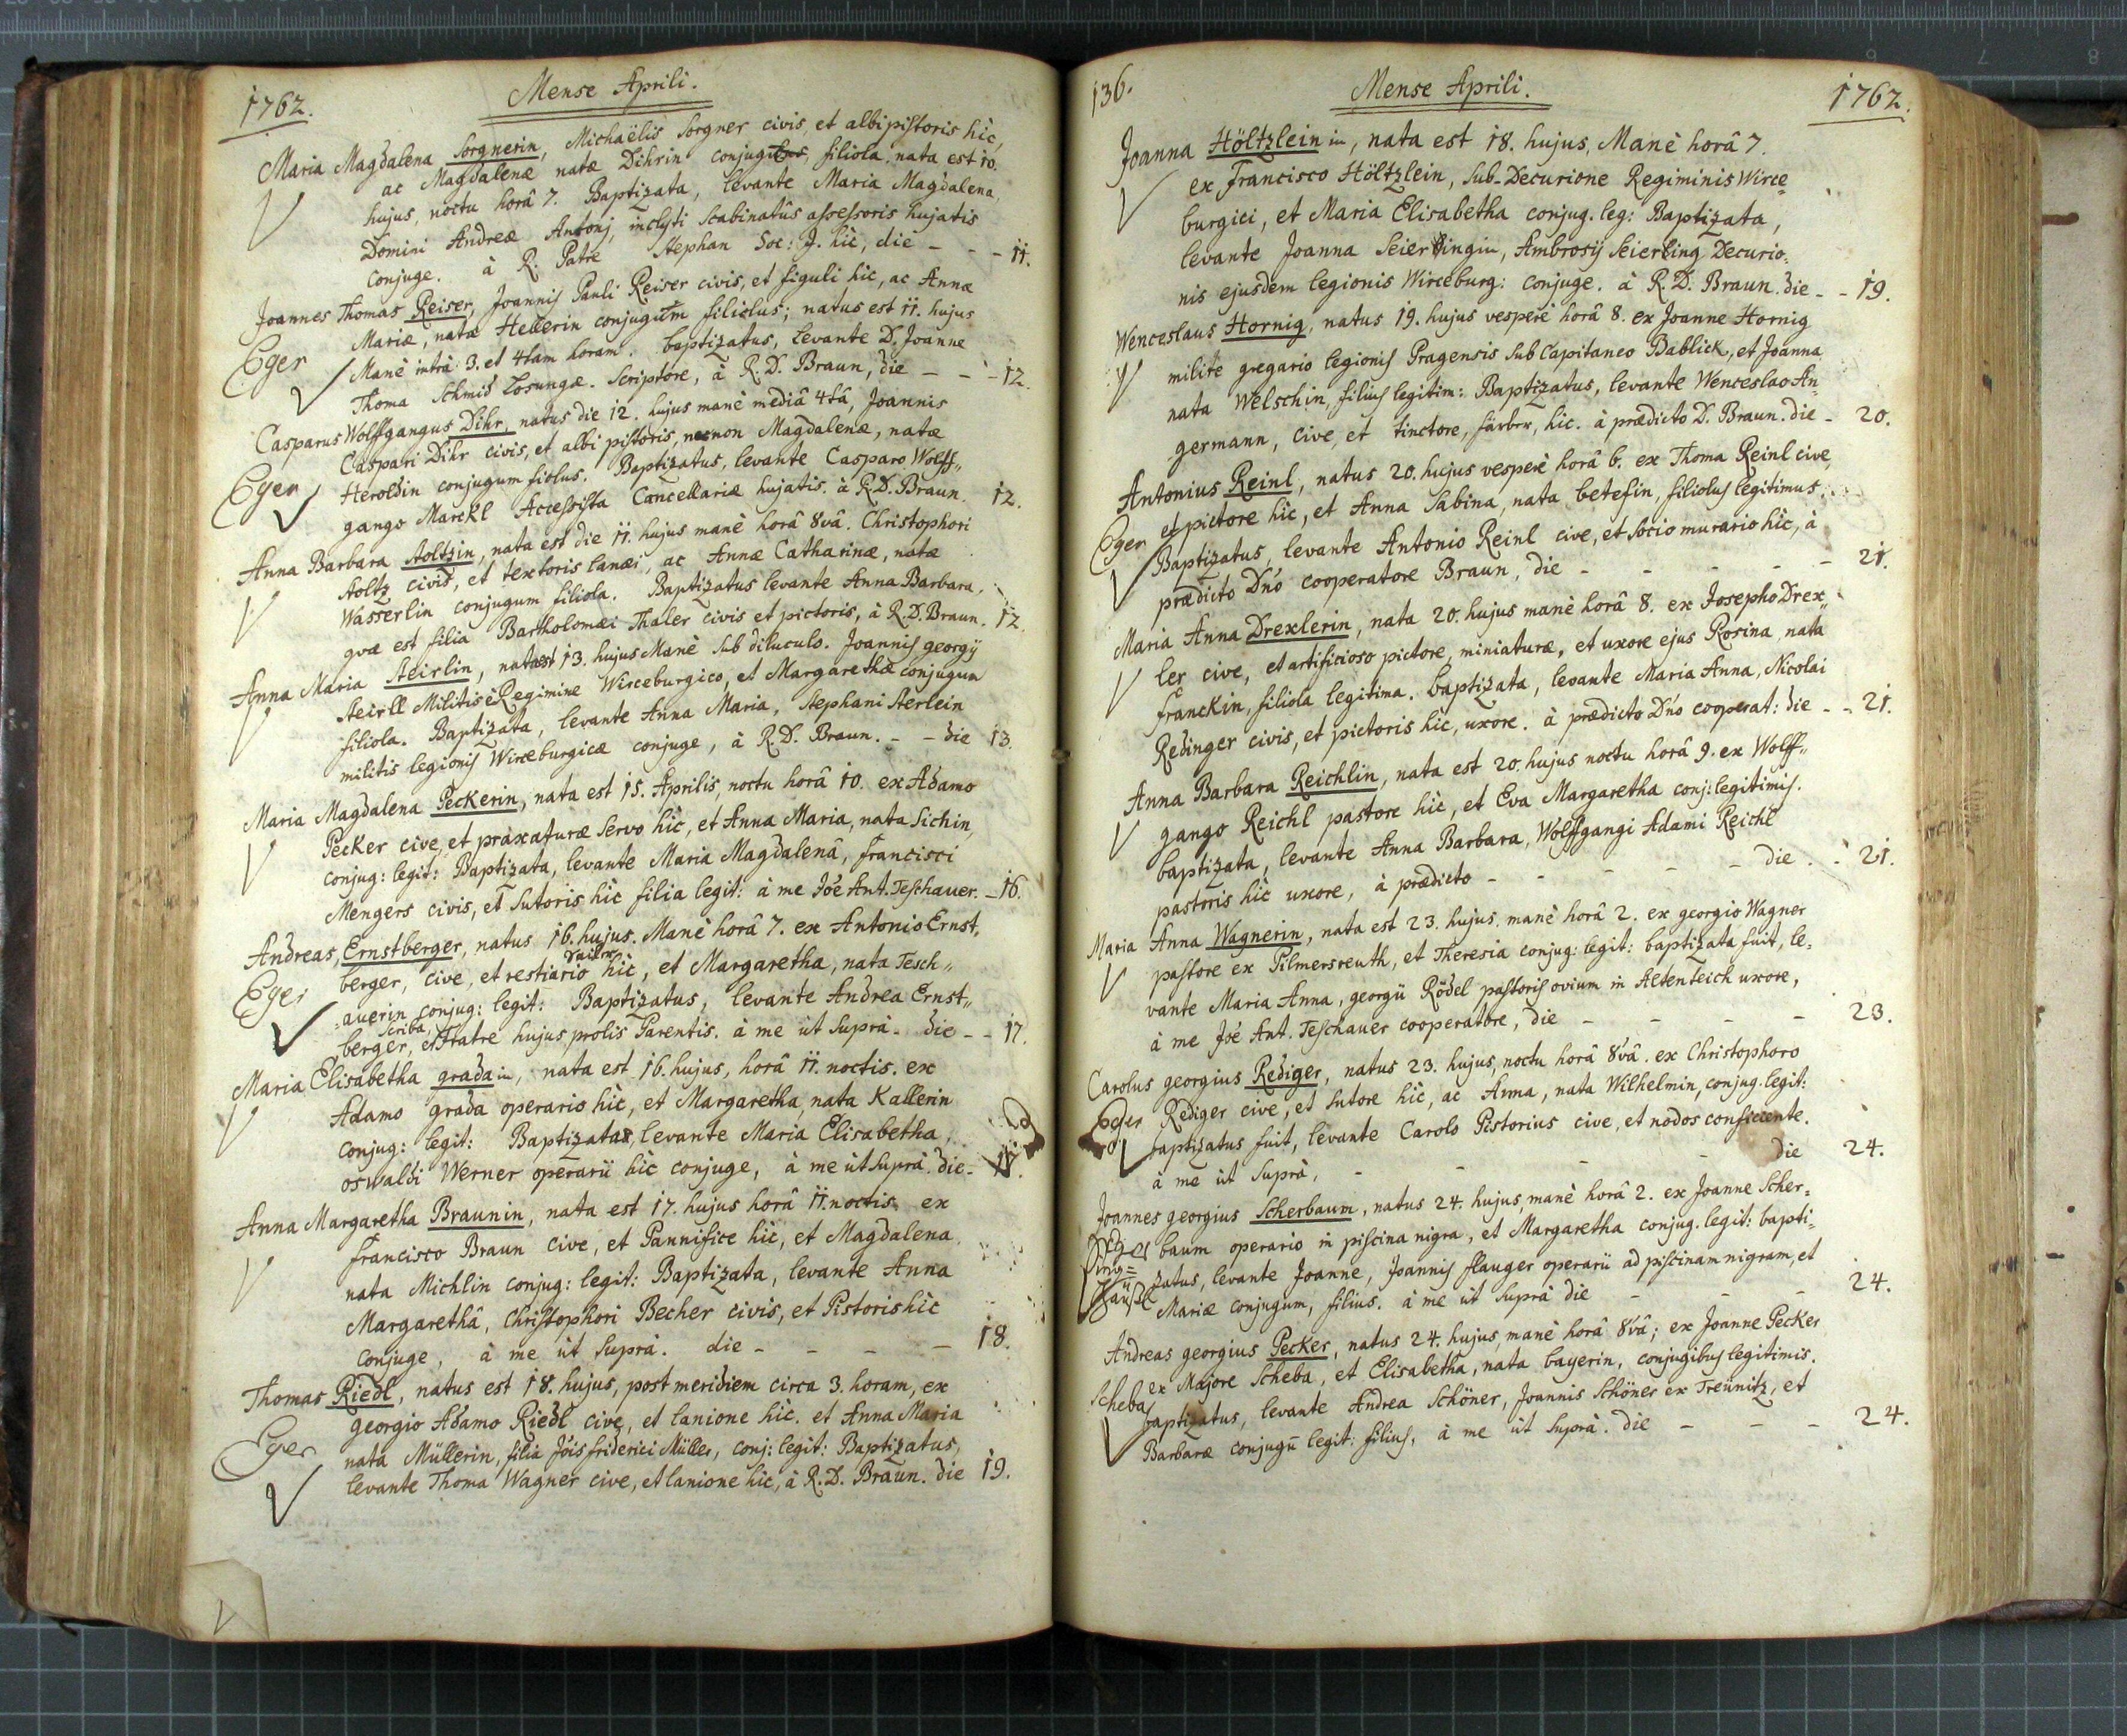 1762. Mense Aprili.
Maria Magdalena Sorgnerin, Michaëlis Sorgner civis, et albipistoris hic,
ac Magdalenæ natæ Dihrin conjug, filiola, nata est 10.
hujus, noctu horâ 7. Baptizata, levante Maria Magdalena,
Domini Andreæ Antonj, inclyti Scabinatûs assessoris hujatis
conjuge. à R. Patre Stephan Soc: J. hic, die - - - 11.
Joannes Thomas Reiser, Joannis Pauli Reiser civis, et figuli hic, ac Annæ
Mariæ, natæ Hellerin conjugum filiolus; natus est 11. hujus
Eger Manè intrà 3. et 4tam horam. baptizatus, levante D. Joanne
Thoma Schmid Losungæ. Scriptore, à R. D. Braun, die - - - 12.
Casparus Wolffgangus Dihr, natus die 12. hujus manè mediâ 4tâ, Joannis
Caspari Dihr civis, et albi pistoris, necnon Magdalenæ, natæ
Eger Heroldin conjugum fiolus. Baptizatus, levante Casparo Wolff„
gango Marckl Accessista Cancellariæ hujatis. à R. D. Braun. 12.
Anna Barbara Stoltzin, nata est die 11. hujus manè horâ 8vâ. Christophori
Stoltz civis, et textoris lanæi, ac Annæ Catharinæ, natæ
Wasserlin conjugum filiola. Baptizatus levante Anna Barbara,
qvæ est filia Bartholomæi Thaler civis et pictoris, à R. D. Braun. 12.
Anna Maria Steirlin, nata est 13. hujus Manè sub diluculo. Joannis georgij
Steirll Militis è Regimine Wirceburgico, et Margarethæ conjugum
filiola. Baptizata, levante Anna Maria, Stephani Sterlein
militis legionis Wirceburgicæ conjuge, à R. D. Braun. - - die 13.
Maria Magdalena Peckerin, nata est 15. Aprilis, noctu horâ 10. ex Adamo
Pecker cive, et praxaturæ servo hic, et Anna Maria, nata Sichin,
conjug: legit: Baptizata, levante Maria Magdalenâ, francisci
Mengers civis, et Sutoris hic filia legit: à me Jôe Ant. Teschauer. - 16.
Andreas, Ernstberger, natus 16. hujus. Manè horâ 7. ex Antonio Ernst„
berger, cive, et restiario hic, et Margaretha, nata Tesch„
Eger auerin conjug: legit: Baptizatus, levante Andrea Ernst„
Scriba,
berger, et Fratre hujus prolis Parentis. à me ùt suprà. die - - 17.
Maria Elisabetha gradain, nata est 16. hujus, horâ 11. noctis. ex
Adamo grada operario hìc, et Margaretha, nata Kallerin
conjug: legit: Baptizata, levante Maria Elisabetha,
oswaldi Werner operarii hic conjuge, à me ùt suprà. die - 17.
Anna Margaretha Braunin, nata est 17. hujus horâ 11. noctis ex
francisco Braun cive, et Pannifice hic, et Magdalena
nata Michlin conjug: legit: Baptizata, levante Anna
Margarethâ, Christophori Becher civis, et Pistoris hic
conjuge, à me ùt suprà. die - - - - 18.
Thomas Riedl, natus est 18. hujus, post meridiem circa 3. horam, ex
georgio Adamo Riedl cive, et lanione hic. et Anna Maria
Eger nata Müllerin, filia Jôis friderici Müller, conj: legit: Baptizatus,
levante Thoma Wagner cive, et lanione hic, à R. D. Braun. die 19.
136. Mense Aprili. 1762.
Joanna Höltzleinin, nata est 18. hujus, Manè horâ 7.
ex Francisco Höltzlein, Sub-Decurione Regiminis Wirce=
burgici, et Maria Elisabetha conjug. leg: Baptizata,
levante Joanna Seierlingin, Ambrosij Seierling Decurio=
nis ejusdem legionis Wirceburg: conjuge. à R. D. Braun. die - - 19.
Wenceslaus Hornig, natus 19. hujus vesperè horâ 8. ex Joanne Hornig
milite gregario legionis Pragensis sub Capitaneo Bablick, et Joanna
nata Welschin, filius legitim: Baptizatus, levante Wenceslao An=
germann, cive, et tinctore, färber, hic. à prædicto D. Braun. die - 20.
Antonius Reinl, natus 20. hujus vesperè horâ 6. ex Thoma Reinl cive,
et pictore hìc, et Anna Sabina, nata betefin, filiolus legitimus.
Eger Baptizatus, levante Antonio Reinl cive, et socio murario hìc, à
prædicto Dn̄o cooperatore Braun, die - - - - - 21.
Maria Anna Drexlerin, nata 20. hujus manè horâ 8. ex Josepho Drex„
ler cive, et artificioso pictore, miniaturæ, et uxore ejus Rosina nata
franckin, filiola legitima. baptizata, levante Maria Anna, Nicolai
Redinger civis, et pictoris hic, uxore. à prædicto Dn̄o cooperat: die - - 21.
Anna Barbara Reichlin, nata est 20. hujus noctu horâ 9. ex Wolff„
gango Reichl pastore hìc, et Eva Margaretha conj: legitimis.
baptizata, levante Anna Barbara, Wolffgangi Adami Reichl
pastoris hic uxore, à prædicto - - - - die - - 21.
Maria Anna Wagnerin, nata est 23. hujus manè horâ 2. ex georgio Wagner
pastore ex Pilmersreuth, et Theresia conjug: legit: baptizata fuit, le=
vante Maria Anna, georgii Rödel pastoris ovium in Altenteich uxore,
à me Jôé Ant. Teschauer cooperatore, die - - - - 23.
Carolus georgius Rediger, natus 23. hujus, noctu horâ 8vâ. ex Christophoro
Eger Rediger cive, et Sutore hìc, ac Anna, nata Wilhelmin, conjug. legit:
baptizatus fuit, levante Carolo Pistorius cive, et nodos conficiente.
à me ùt suprà, - - - - die 24.
Joannes georgius Scherbaum, natus 24. hujus, manè horâ 2. ex Joanne Scher=
baum operario in piscina nigra, et Margaretha conjug. legit: bapti=
zatus, levante Joanne, Joannis flauger operarii ad piscinam nigram, et
Mariæ conjugum, filius. à me ùt suprà die - - - 24.
Andreas georgius Pecker, natus 24. hujus, manè horâ 8vâ; ex Joanne Pecker
ex Majore Scheba, et Elisabetha, nata bayerin, conjugibus legitimis.
Scheba baptizatus, levante Andrea Schöner, Joannis Schöner ex Treünitz, et
Barbaræ conjugū legit: filius, à me ùt suprà. die - - - 24.